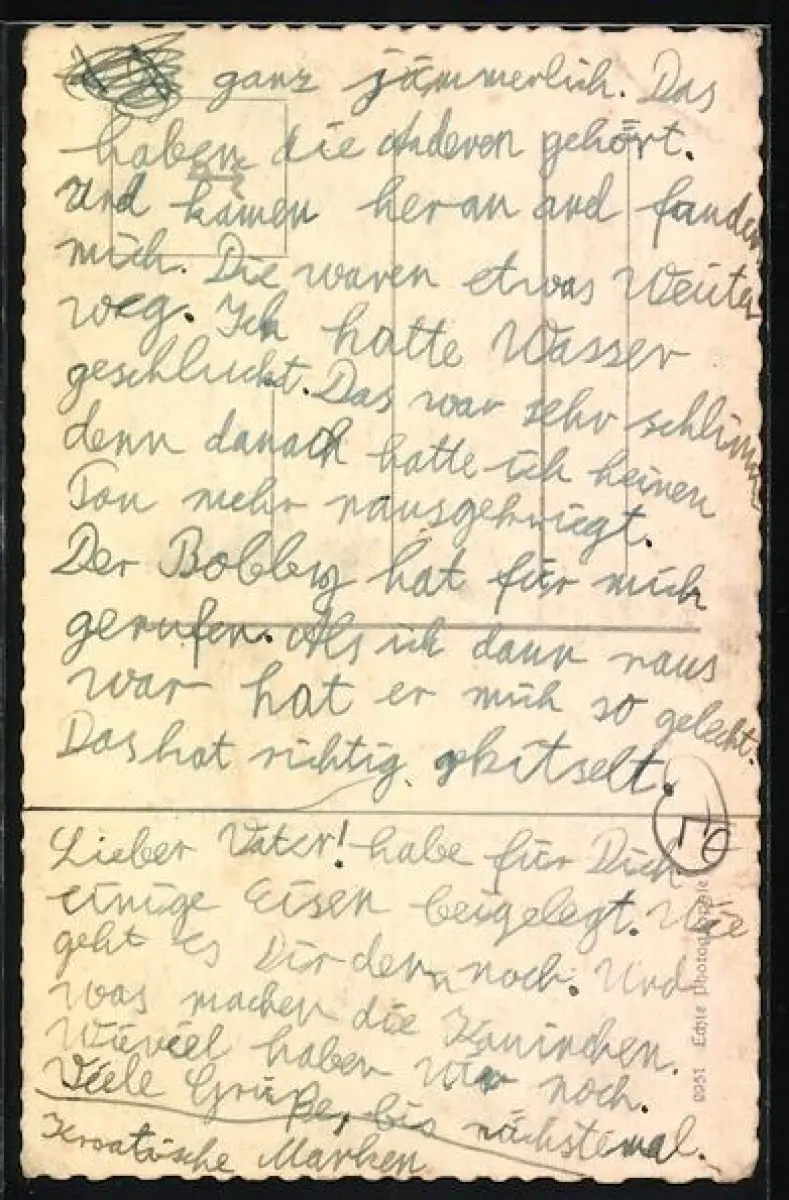 ganz jämmerlich. Das
haben die Anderen gehört.
Und kamen heran und fanden
mich. Die waren etwas Weiter
weg. Ich hatte Wasser
geschluckt. Das war sehr schlimm
denn danach hatte ich keinen
Ton mehr rausgekriegt.
Der Bobby hat für mich
gerufen. Als ich dann raus
war hat er mich so geleckt.
Das hat richtig gekitselt.
Lieber Vater! habe für Dich
einige Eisen beigelegt. Wie
geht Es Dir denn noch. Und
was machen die Kaninchen.
Wieviel haben Wir noch.
Viele Grüße, bis nächstemal.
Kroatische Marken
Echte Photographie